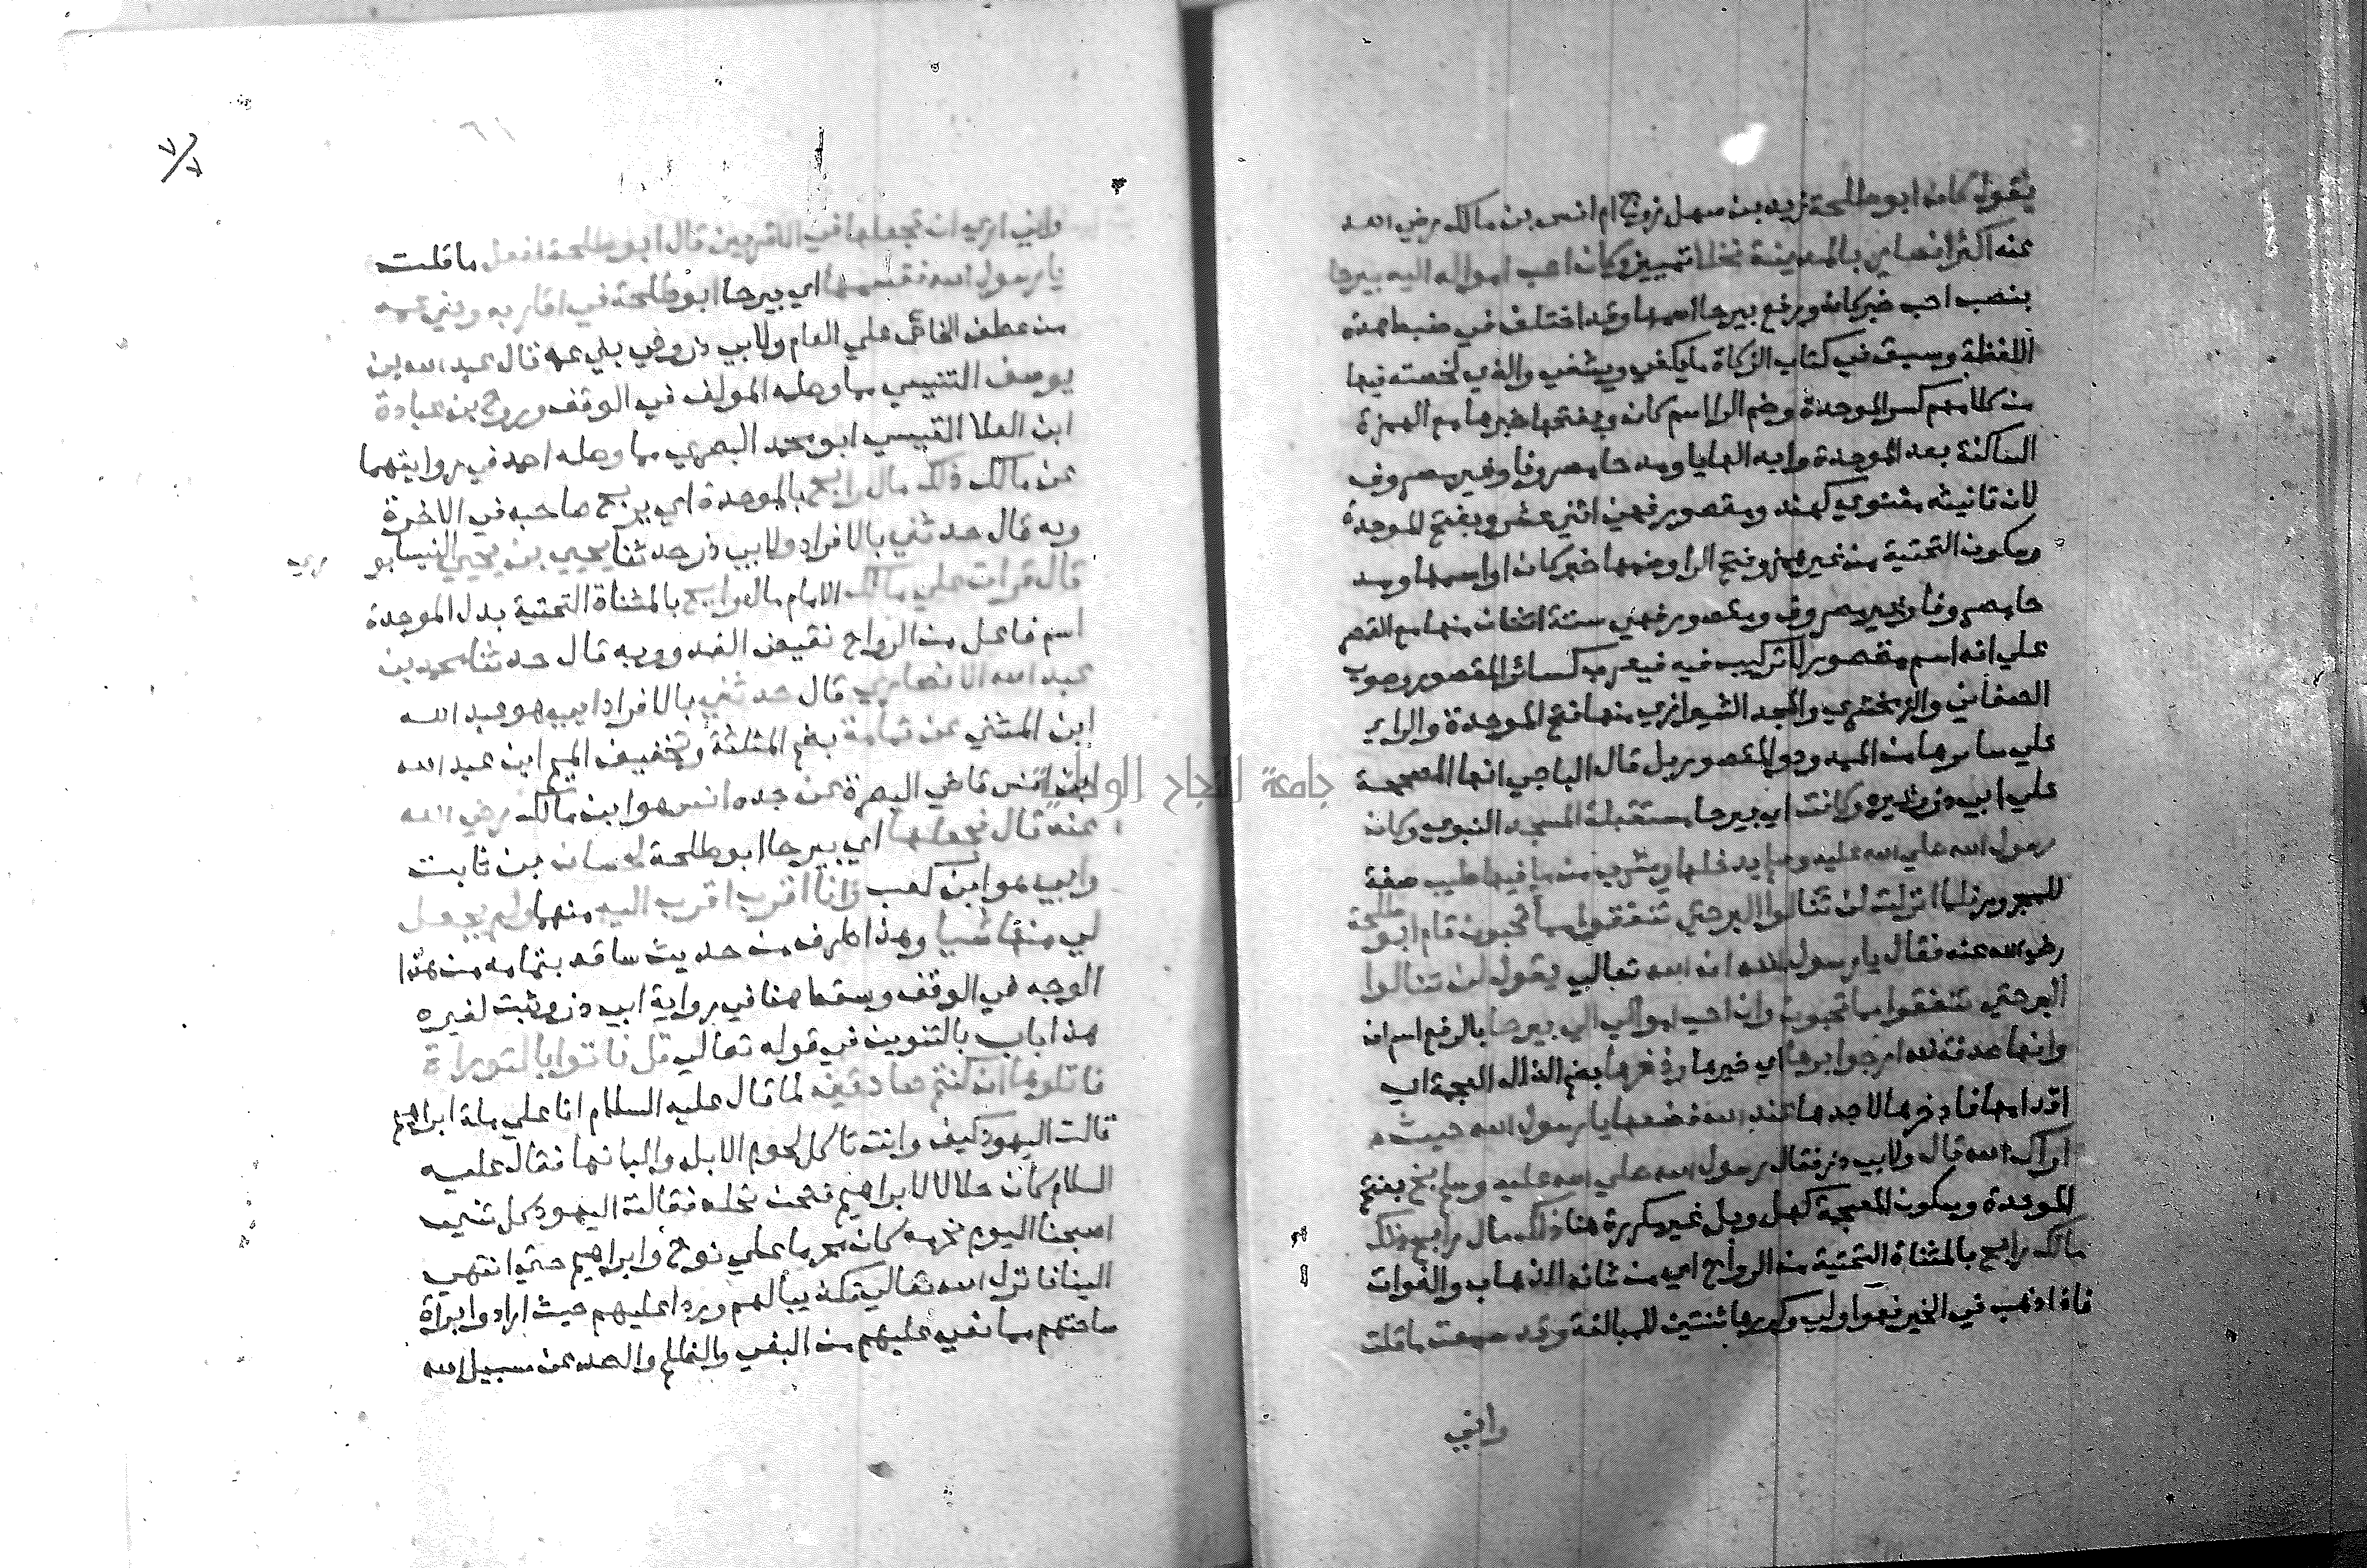 يقول كان ابو طلحة زيد بن سهل زوج ام انس بن مالك رضي الله
عنه اكثر انصاري بالمدينة نخلا تمييز وكان احب امواله اليه بيرحا
بنصب احب خبر كان ورفع بيرحا اسمها وقد اختلف في ضبط هذه
اللفظة وسبق في كتاب الزكاة ما يكفي ويشفي والذي لخصته فيها
من كلامهم كسر الموحدة وضم الرا اسم كان وبفتحها خبرها مع الهمزة
الساكنة بعد الموحدة وابدالها يا ومد حا مصروفا وغير مصروف
لان تانيثه معنوي كهند ومقصور فهي اثني عشر وبفتح الموحدة
وسكون التحتية من غير همز وفتح الرا وضمها خبر كان او اسمها ومد
حا مصروفا وغير مصروف ومقصور فهي ستة اثنان منها مع القصر
علي انه اسم مقصور لا تركيب فيه فيعرب كسائر المقصور وصوب
الصغاني والزمخشري والمجد الشيرازي منها فتح الموحدة والراي
علي سايرها من الممدود والمقصور بل قال الباجي انها المصححة
علي ابي ذر وغيره وكانت اي بيرحا مستقبلة المسجد النبوي وكان
رسول الله صلي الله عليه وسلم يدخلها ويشرب من ما فيها طيب صفة
للمجرور فلما انزلت لن تنالوا البر حتي تنفقوا مما تحبون قام ابو طلحة
رضي الله عنه فقال يا رسول الله ان الله تعالي يقول لن تنالوا
البر حتي تنفقوا مما تحبون وان احب اموالي الي بيرحا بالرفع اسم ان
وانها صدقة لله ارجوا برها اي خيرها وذخرها بضم الذال المعجمة اي
اقدامها فادخرها لاجدها عند الله فضعها يا رسول الله حيث
اراك الله قال ولابي ذر فقال رسول الله صلي الله عليه وسلم بخ بفتح
الموحدة وسكون المعجمة كهل وبل غير مكررة هنا ذلك مال رابح ذلك
مال رايح بالمثناة التحتية من الرواح اي من شانه الذهاب والفوات
فاذا ذهب في الخير فهو اولي وكررها ثنتين للمبالغة وقد سمعت ما قلت
واني
واني اري ان تجعلها في الاقربين قال ابو طلحة افعل ما قلت
يا رسول الله فقسمها اي بيرحا ابو طلحة في اقاربه وبني عمه
من عطف الخاص علي العام ولابي ذر وفي بني عمه قال عبد الله بن
يوسف التنيسي مما وصله المولف في الوقف وروح بن عبادة
ابن العلا القيسي ابو محمد البصري مما وصله احمد في روايتهما
عن مالك ذلك مال رابح بالموحدة اي يربح صاحبه في الاخرة
وبه قال حدثني بالافراد ولابي ذر حدثنا يحيي بن يحيي النيسابو ري
قال قرات علي مالك الامام مال رايح بالمثناة التحتية بدل الموحدة
اسم فاعل من الرواح نقيض الغدو وبه قال حدثنا محمد بن
عبد الله الانصاري قال حدثني بالافراد ابي هو عبد الله
ابن المثني عن ثمامة بضم المثلثة وتخفيف الميم ابن عبد الله
ابن انس قاضي البصرة عن جده انس هو ابن مالك رضي الله
عنه قال فجعلها اي بيرحا ابو طلحة لحسان بن ثابت
وابي هو ابن كعب وانا اقرب اقرب اليه منهما ولم يجعل
لي منها شيا وهذا طرف من حديث ساقه بتمامه من هذا
الوجه في الوقف وسقط هنا في رواية ابي ذر وثبت لغيره
هذا باب بالتنوين في قوله تعالي قل فاتوا بالتوراة
فاتلوها ان كنتم صادقين لما قال عليه السلام انا علي ملة ابراهيم
قالت اليهود كيف وانت تاكل لحوم الابل والبانها فقال عليه
السلام كان حلالا لابراهيم فنحن نحله فقالت اليهود كل شيء
اصبحنا اليوم نحرمه كان محرما علي نوح وابراهيم حتي انتهي
الينا فانزل الله تعالي تكذيبا لهم وردا عليهم حيث ارادوا براة
ساحتهم مما نعي عليهم من البغي والظلم والصد عن سبيل الله
جامعة النجاح الوطنية